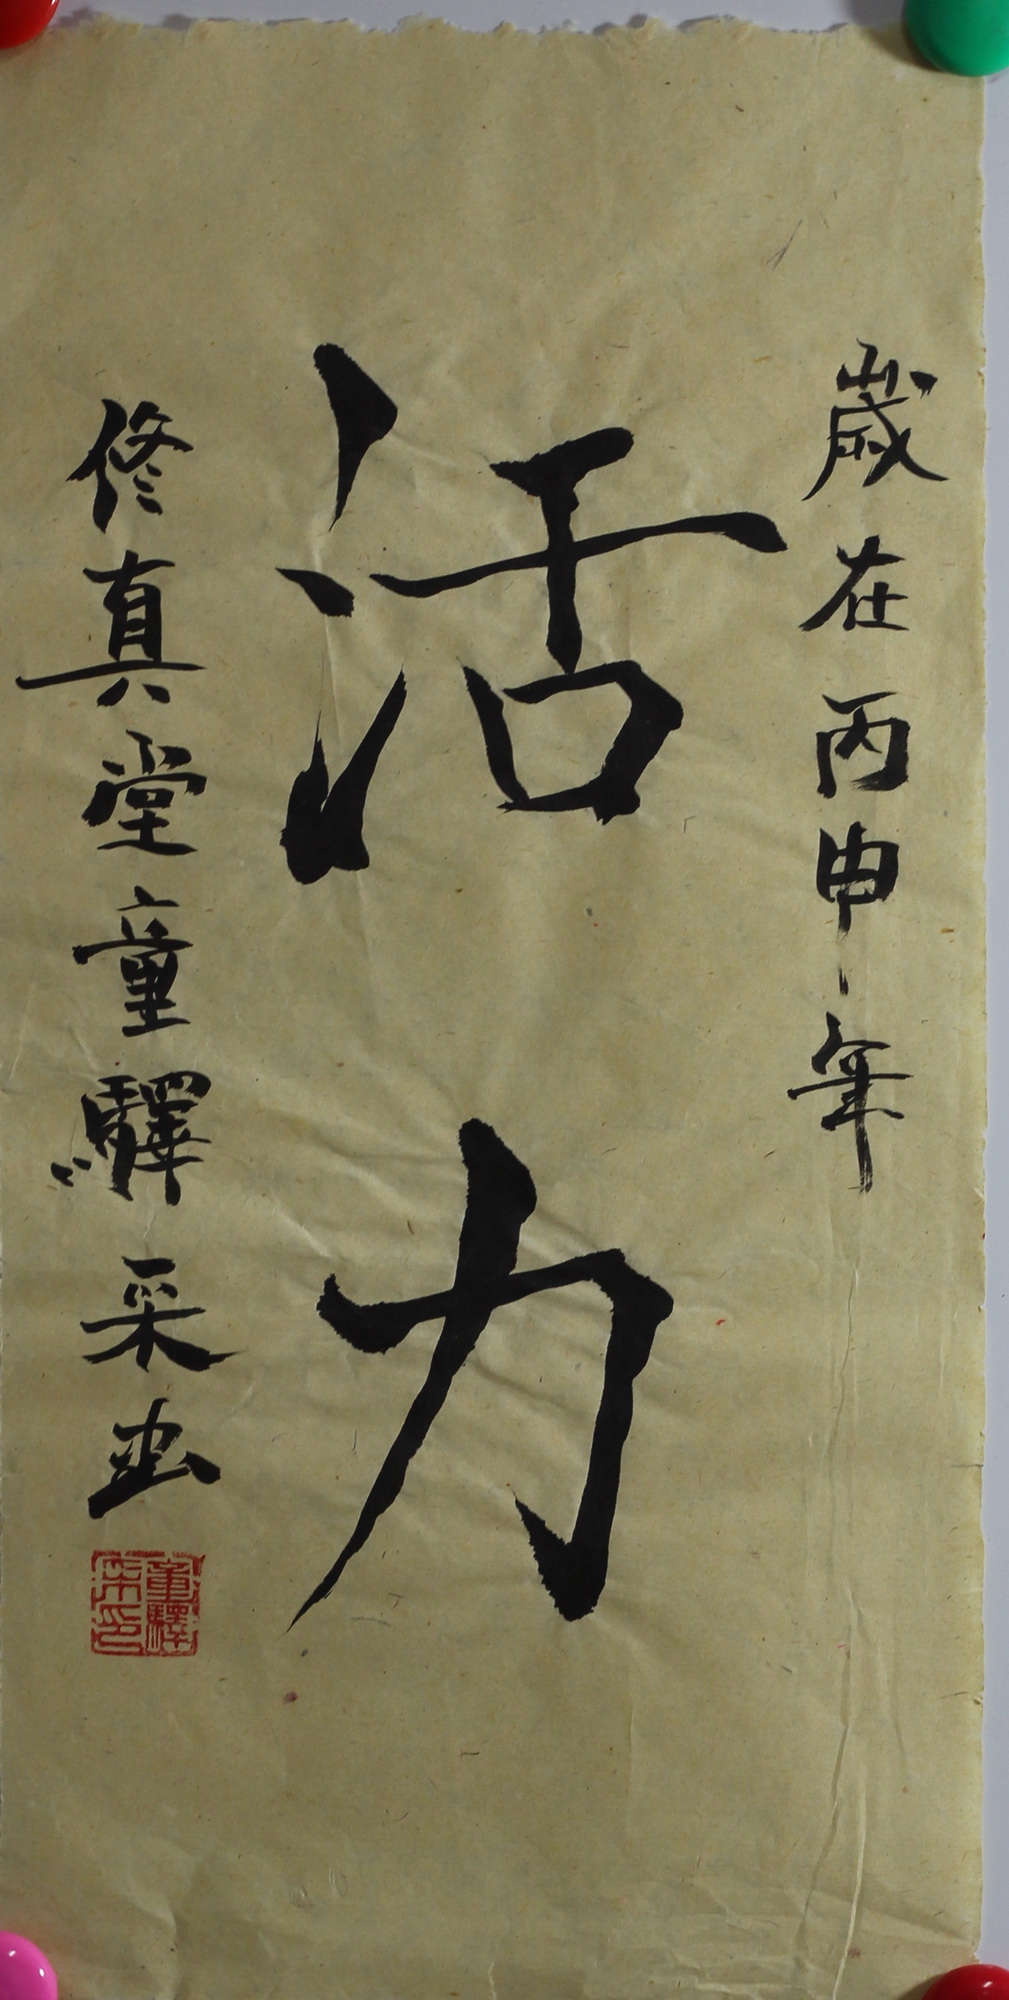 歲在丙申年
活力
修真堂童驛采書
童驛采印